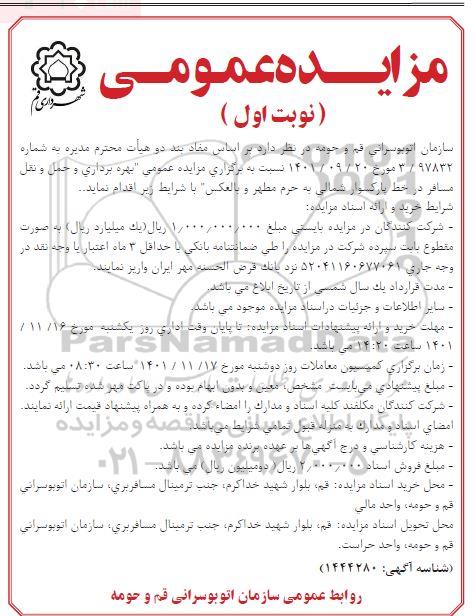 مزایـــده عمومـــی
شهرداری قم
( نوبت اول )
سازمان اتوبوسرانی قم و حومه در نظر دارد بر اساس مفاد بند دو هیأت محترم مدیره به شماره
۳/۹۷۸۳۲ مورخ ۱۴۰۱/۰۹/۲۰ نسبت به برگزاری مزایده عمومی "بهره برداری و حمل و نقل
مسافر در خط پارکسوار شمالی به حرم مطهر و بالعکس" با شرایط زیر اقدام نماید..
شرایط خرید و ارائه اسناد مزایده:
- شرکت کنندگان در مزایده بایستی مبلغ ۱/۰۰۰/۰۰۰/۰۰۰ ریال(یك میلیارد ریال) به صورت
مقطوع بابت سپرده شرکت در مزایده را طی ضمانتنامه بانکی با حداقل ۳ ماه اعتبار یا وجه نقد در
وجه جاری ۵۲۰۴۱۱۶۰۶۷۷۰۶۱ نزد بانك قرض الحسنه مهر ایران واریز نمایند.
- مدت قرارداد یك سال شمسی از تاریخ ابلاغ می باشد.
- سایر اطلاعات و جزئیات دراسناد مزایده موجود می باشد.
- مهلت خرید و ارائه پیشنهادات اسناد مزایده: تا پایان وقت اداری روز یکشنبه مورخ ۱۶/ ۱۱ /
۱۴۰۱ ساعت ۱۴:۲۰ می باشد.
- زمان برگزاری کمیسیون معاملات روز دوشنبه مورخ ۱۷/ ۱۱ / ۱۴۰۱ ساعت ۰۸:۳۰ می باشد.
- مبلغ پیشنهادی می‌بایست مشخص، معین و بدون ابهام بوده و در پاکت مهر شده تسلیم گردد.
- شرکت کنندگان مکلفند کلیه اسناد و مدارك را امضاء کرده و به همراه پیشنهاد قیمت ارائه نمایند.
امضای اسناد و مدارك به منزله قبول تمامی شرایط می‌باشد.
- هزینه کارشناسی و درج آگهی‌ها بر عهده برنده مزایده می باشد.
- مبلغ فروش اسناد ۲/۰۰۰/۰۰۰ ریال( دومیلیون ریال) می باشد.
- محل خرید اسناد مزایده: قم، بلوار شهید خداکرم، جنب ترمینال مسافربری، سازمان اتوبوسرانی
قم و حومه، واحد مالی
محل تحویل اسناد مزایده: قم، بلوار شهید خداکرم، جنب ترمینال مسافربری، سازمان اتوبوسرانی
قم و حومه، واحد حراست.
(شناسه آگهی: ۱۴۴۴۲۸۰)
روابط عمومی سازمان اتوبوسرانی قم و حومه
ParsNamadData
۰۲۱-۸۸۳۴۹۶۷۰-۵